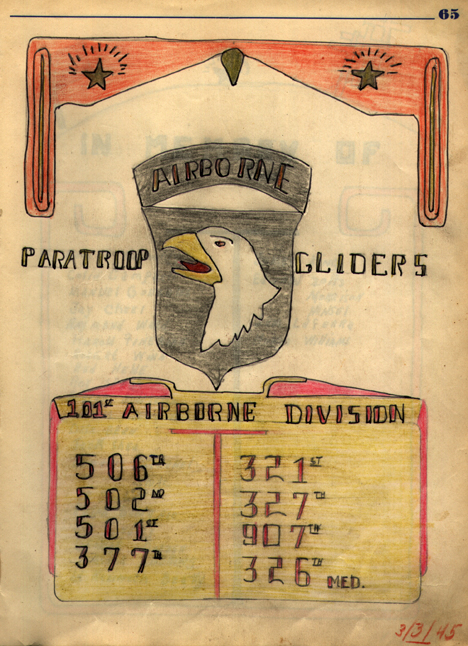 65
AIRBORNE
PARATROOP GLIDERS
101ST AIRBORNE DIVISION
506TH 321ST
502ND 327TH
501ST 907TH
377TH 326TH MED.
3/3/45